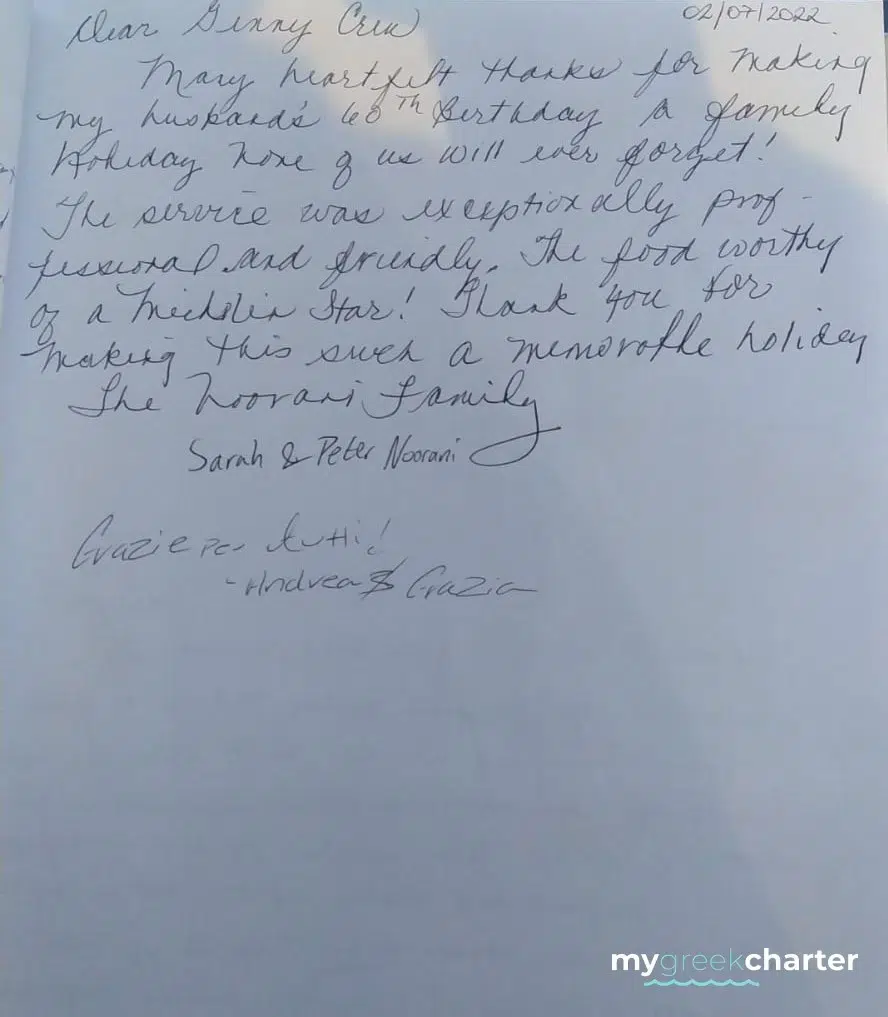 Dear Genny Crew
02/07/2022
Many heartfelt thanks for making
my husband's 60TH Birthday a family
Holiday none of us will ever forget!
The service was exceptionally prof-
fessional and friendly. The food worthy
of a Michelin Star! Thank you for
making this such a memorable holiday
The Noorani Family
Sarah & Peter Noorani
Grazie per tutti!
- Andrea & Grazia
mygreekcharter